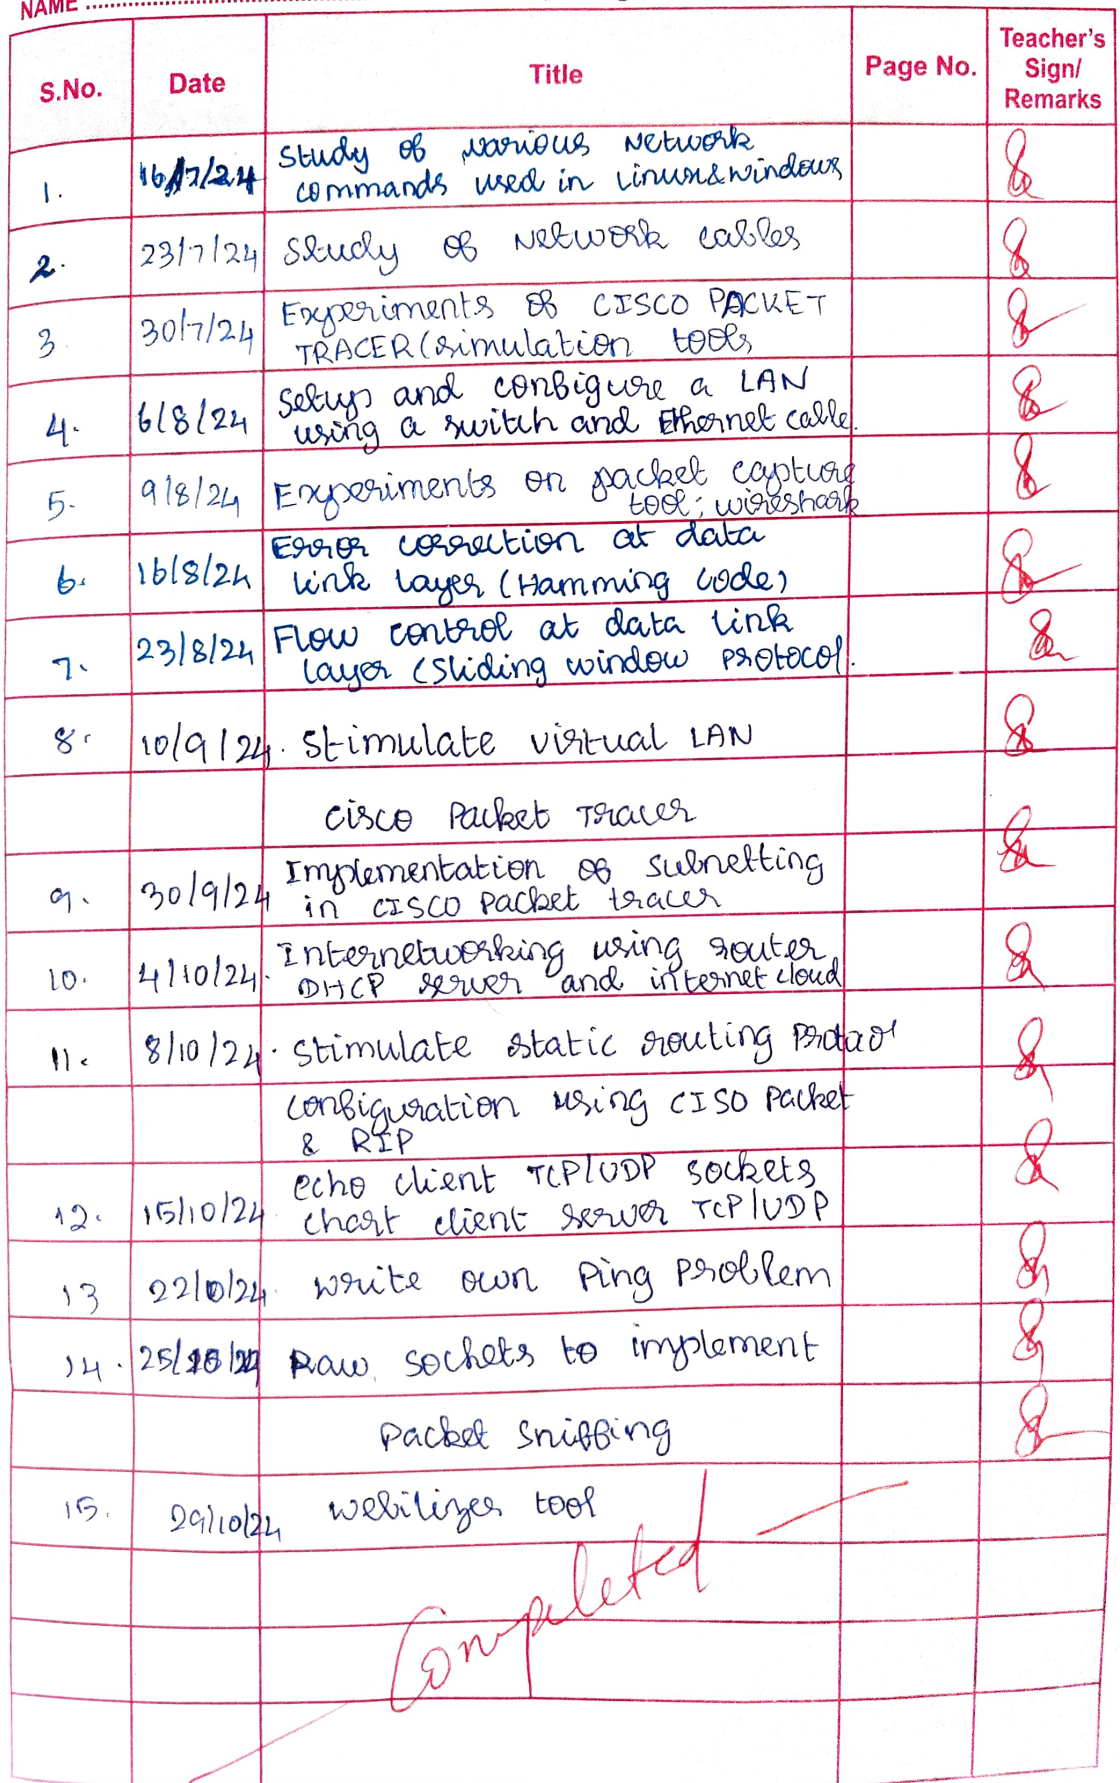 NAME
S.No. Date Title Page No. Teacher's Sign/ Remarks
1. 16/7/24 Study of various Network
commands used in Linux&windows
2. 23/7/24 Study of Network cables
3. 30/7/24 Experiments of CISCO PACKET
TRACER(simulation tools
4. 6/8/24 Setup and configure a LAN
using a switch and Ethernet calle.
5. 9/8/24 Experiments on packet capture
tool; wireshark
6. 16/8/24 Error correction at data
link layer (Hamming code)
7. 23/8/24 Flow control at data link
layer (sliding window protocol.
8. 10/9/24. Stimulate virtual LAN
cisco Packet Tracer
9. 30/9/24 Implementation of subnetting
in CISCO packet tracer
10. 4/10/24. Internetworking using router
DHCP server and internet cloud
11. 8/10/24. Stimulate static routing
configuration using CISO Packet
& RIP
12. 15/10/24 echo client TCP/UDP sockets
chart client server TCP/UDP
13 22/0/24. write own Ping problem
14. Raw sockets to implement
packet sniffing
15. 29/10/24 webilizer tool
Completed